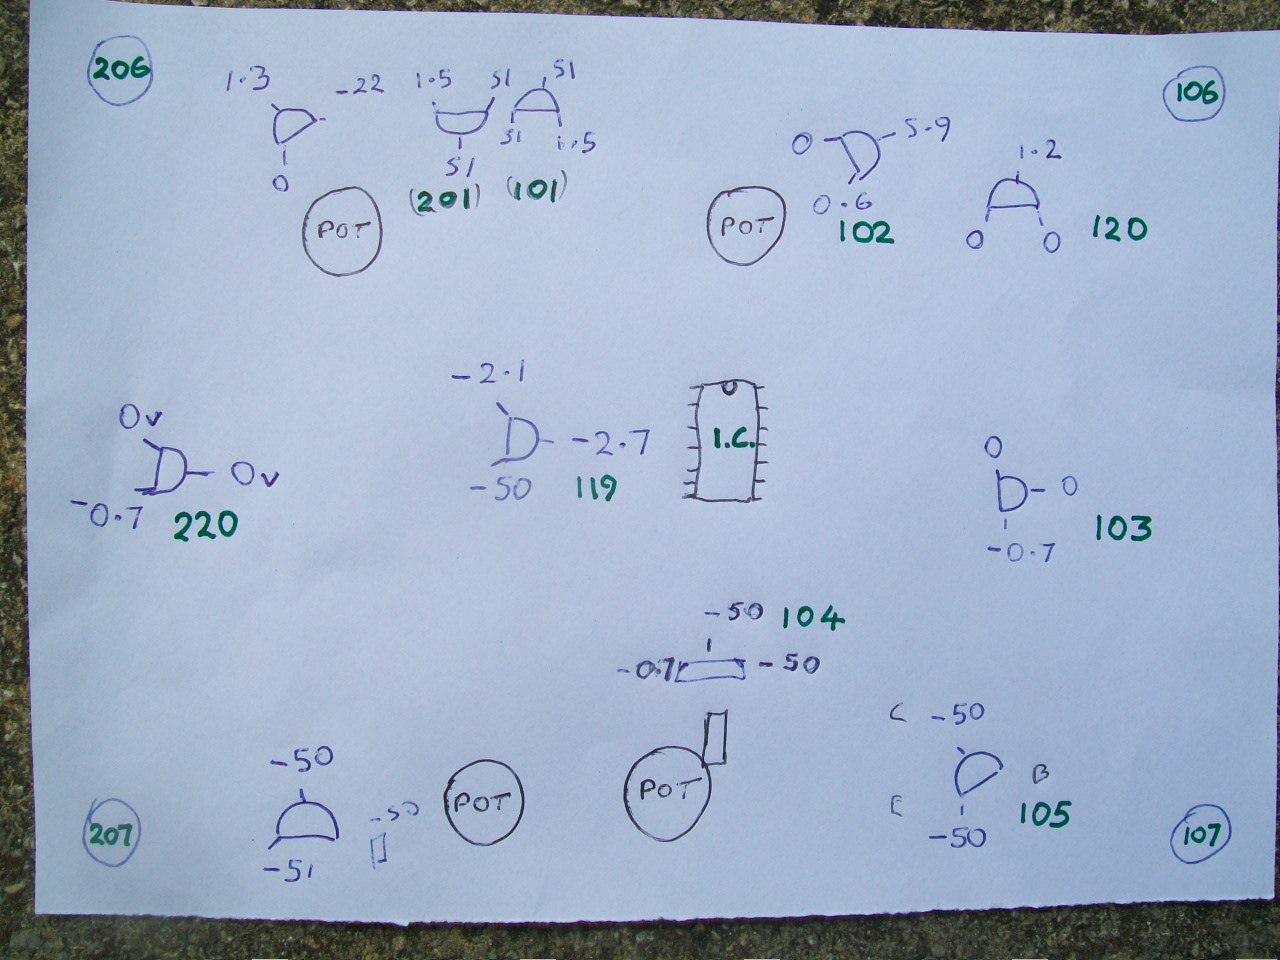 206
1.3
-22
1.5
51
51
106
0
5.9
51
1.5
51
1.2
0
(201)
(101)
0.6
POT
POT
102
0
0
120
-2.1
Ov
-2.7
I.C.
0
Ov
-50
119
0
-0.7
220
103
-0.7
-50 104
-0.7
-50
C -50
-50
B
POT
POT
-50
E
105
207
107
-50
-51